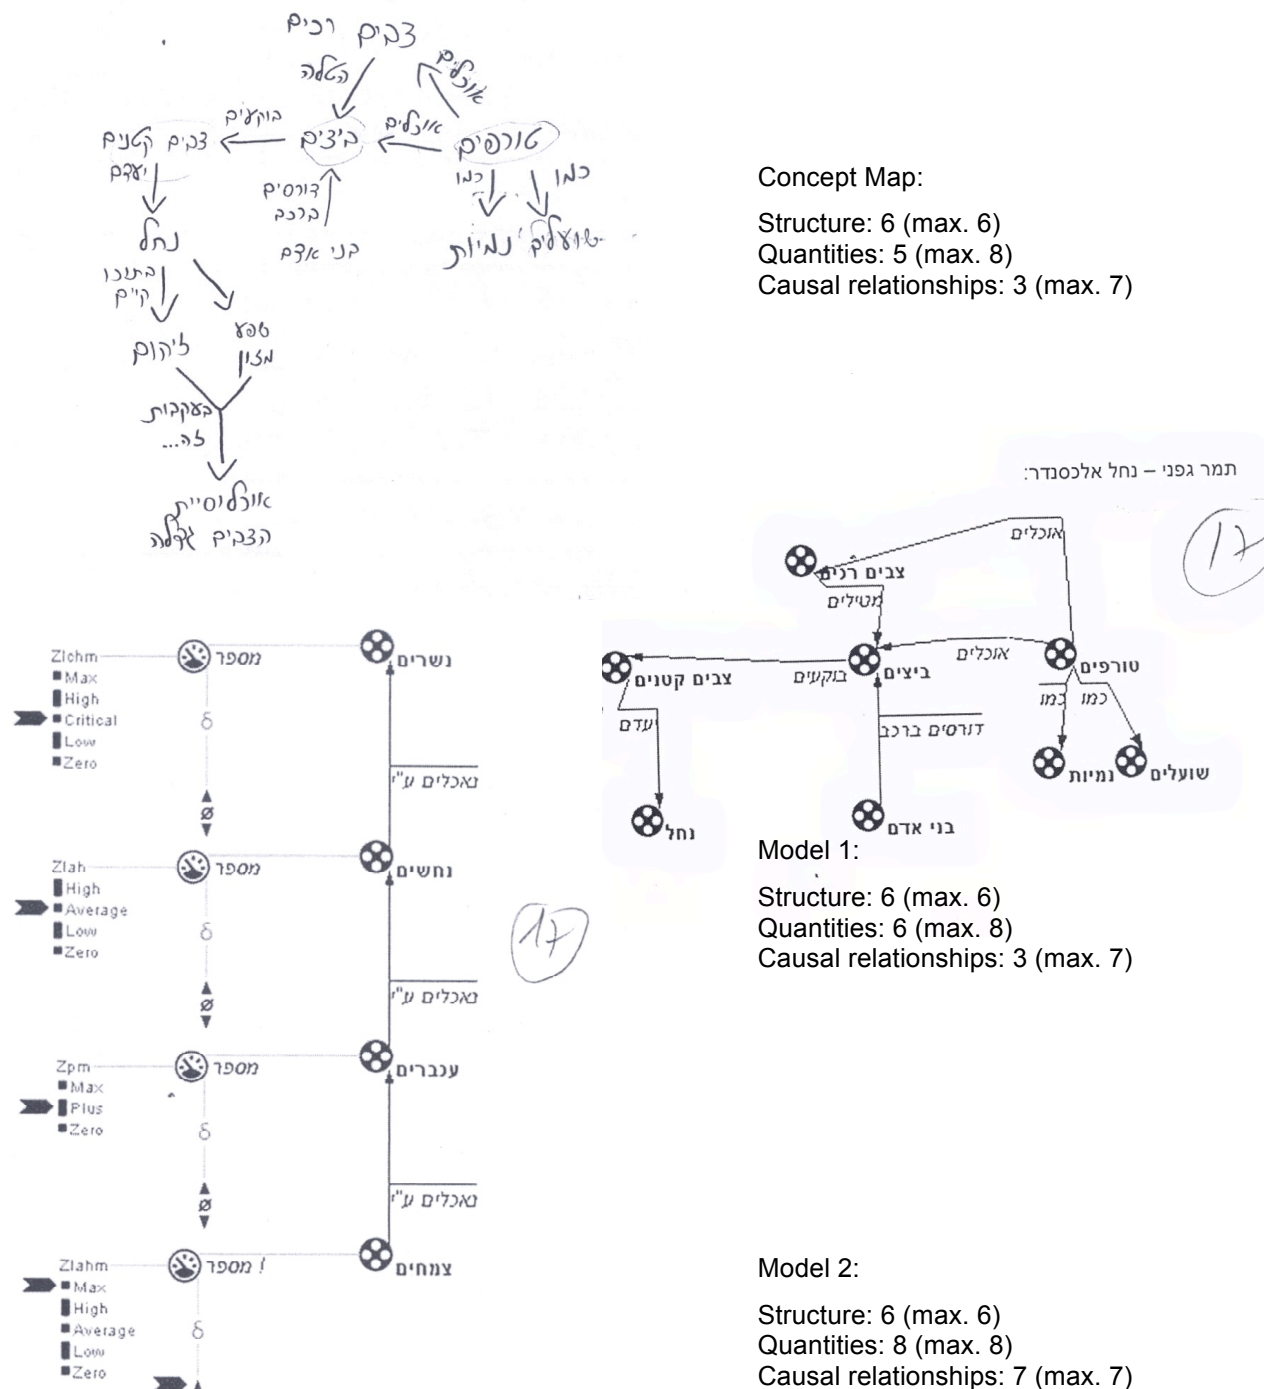 צבים רכים
הטלה
אוכלים
צבים קטנים
בוקעים
ביצים
אוכלים
טורפים
יעדם
דורסים
ברכב
בני אדם
כמו
כמו
שועלים
נמיות
נחל
בתוכו
קיים
זיהום
שפע
מזון
בעקבות
זה...
אוכלוסיית
הצבים גדלה
Concept Map:
Structure: 6 (max. 6)
Quantities: 5 (max. 8)
Causal relationships: 3 (max. 7)
תמר גפני – נחל אלכסנדר:
17
אוכלים
צבים רכים
מטילים
אוכלים
טורפים
ביצים
בוקעים
צבים קטנים
כמו
כמו
יעדם
דורסים ברכב
שועלים
נמיות
בני אדם
נחל
Model 1:
Structure: 6 (max. 6)
Quantities: 6 (max. 8)
Causal relationships: 3 (max. 7)
Zlchm
Max
High
Critical
Low
Zero
מספר
δ
נשרים
נאכלים ע"י
Zlah
High
Average
Low
Zero
מספר
δ
נחשים
17
נאכלים ע"י
Zpm
Max
Plus
Zero
מספר
δ
עכברים
נאכלים ע"י
Zlahm
Max
High
Average
Low
Zero
מספר !
δ
צמחים
Model 2:
Structure: 6 (max. 6)
Quantities: 8 (max. 8)
Causal relationships: 7 (max. 7)